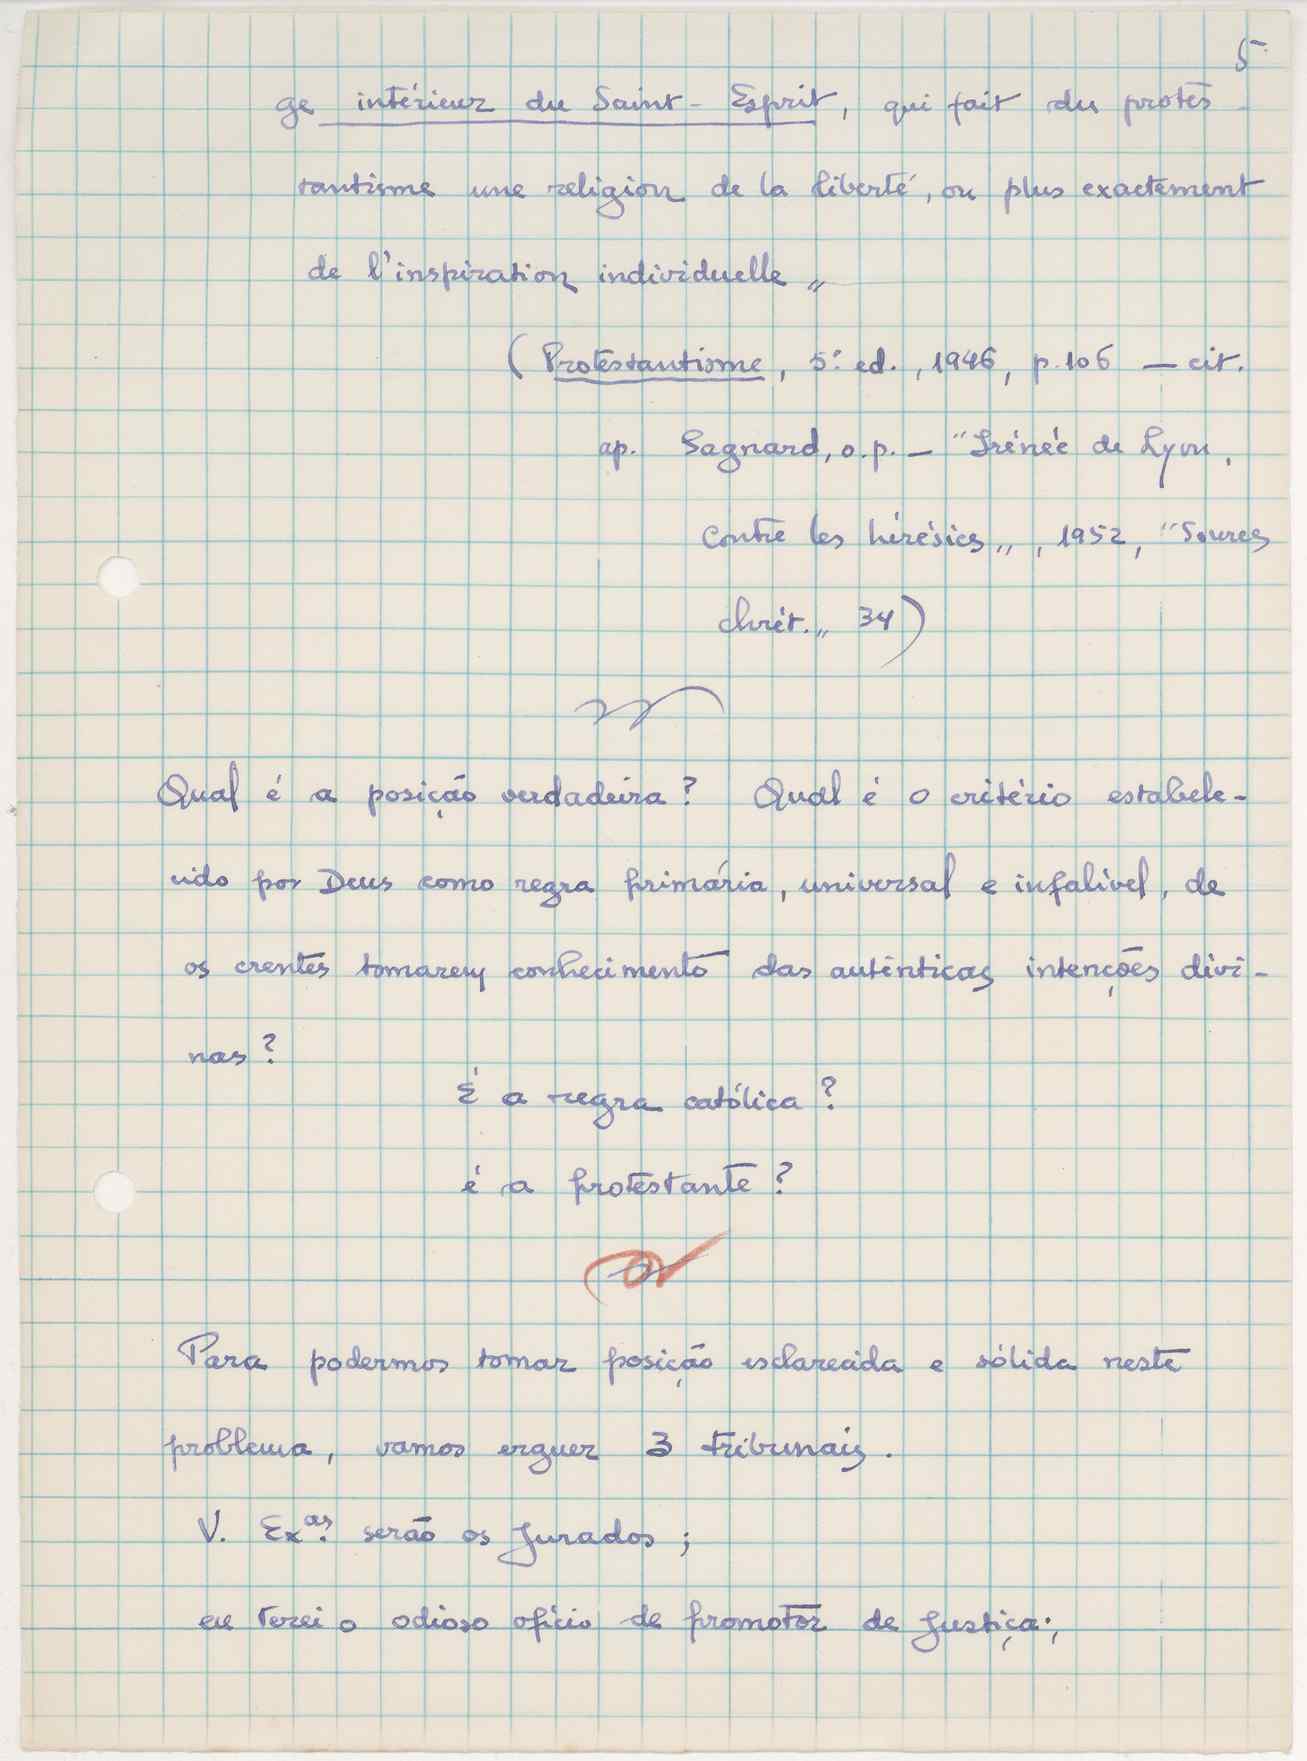 5
ge intérieur du Saint-Esprit, qui fait du protes-
tantisme une religion de la liberté, ou plus exactement
de l'inspiration individuelle„
(Protestantisme, 5.ª ed., 1946, p. 106 — cit.
ap. Sagnard, o.p. — "Irénée de Lyon,
Contre les hérésies„, 1952, "Sources
chrét.„ 34)
Qual é a posição verdadeira? Qual é o critério estabele-
cido por Deus como regra primária, universal e infalível, de
os crentes tomarem conhecimento das autênticas intenções divi-
nas?
É a regra católica?
é a protestante?
Para podermos tomar posição esclarecida e sólida neste
problema, vamos erguer 3 tribunais.
V. Ex.as serão os Jurados;
eu terei o odioso ofício de promotor de Justiça;